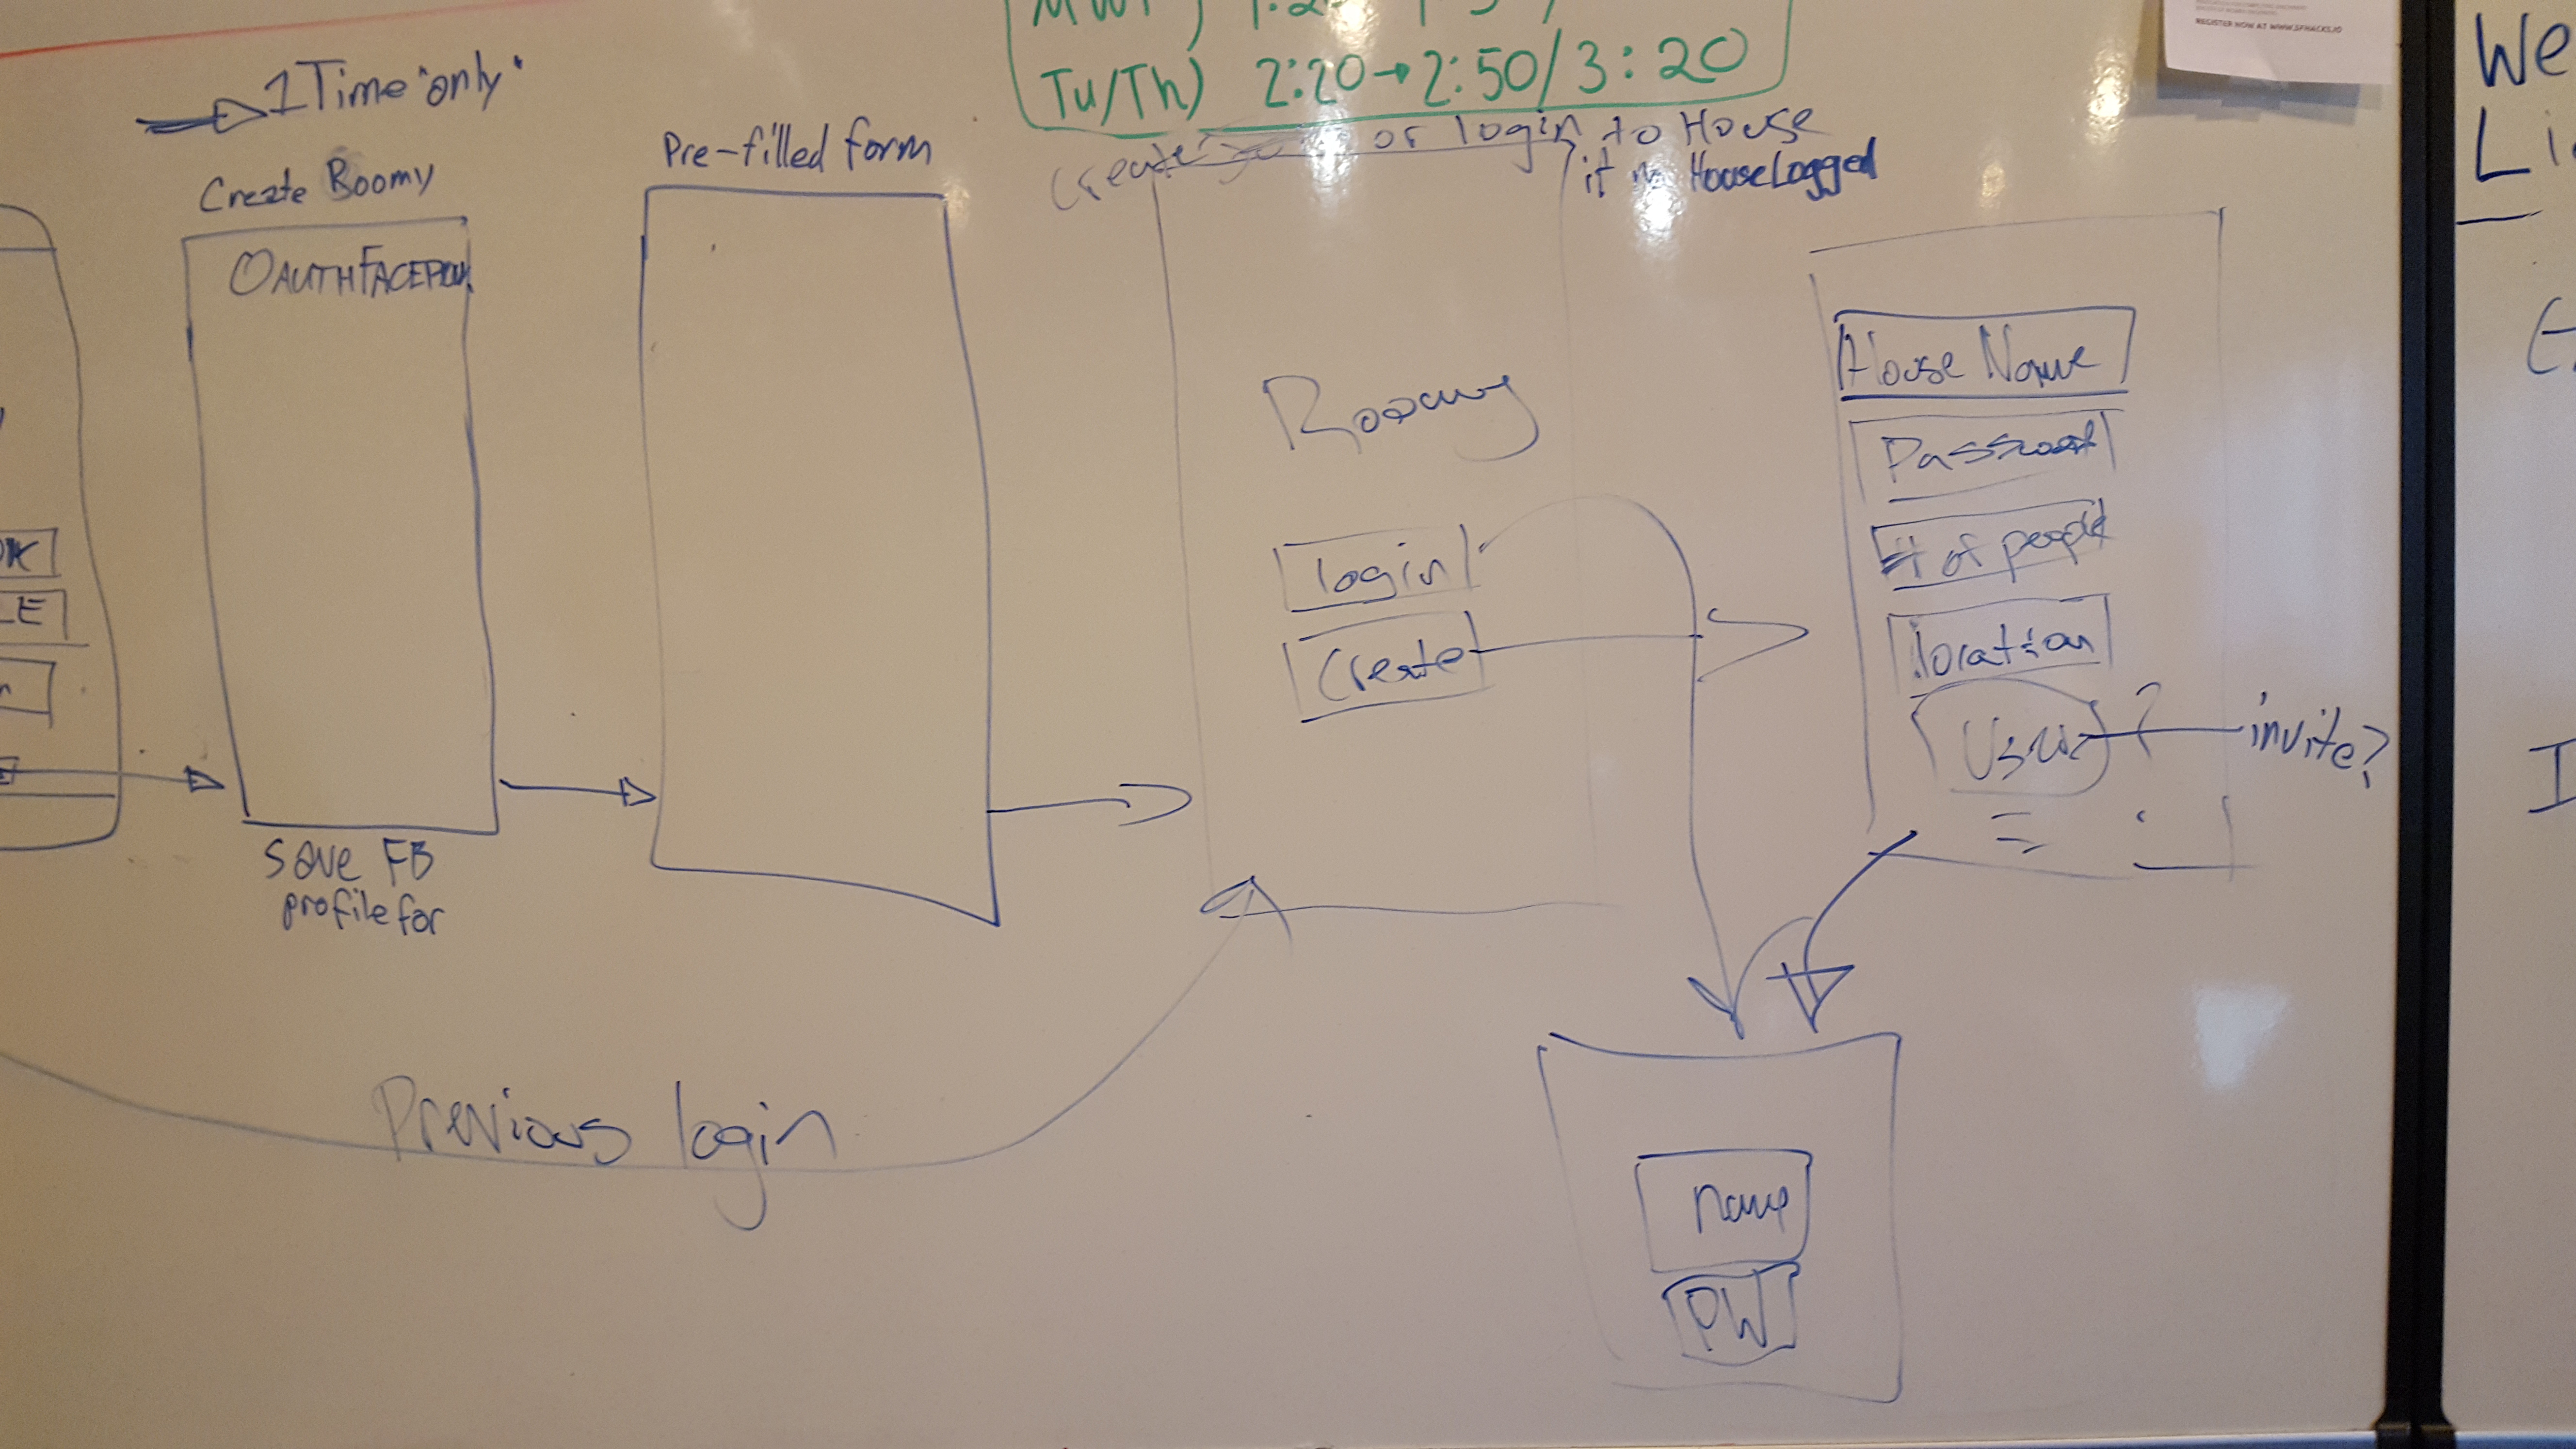 Tu/Th) 2:20→2:50/3:20
REGISTER NOW AT WWW.SFHACKS.IO
We
1 Time "only"
Create Roomy
OAUTHFACEBOOK
save FB
profile for
Pre-filled form
Create or login to House
if no HouseLogged
Roomy
login
Create
House Name
Password
# of people
location
Users ? invite?
Previous login
name
PW
LE